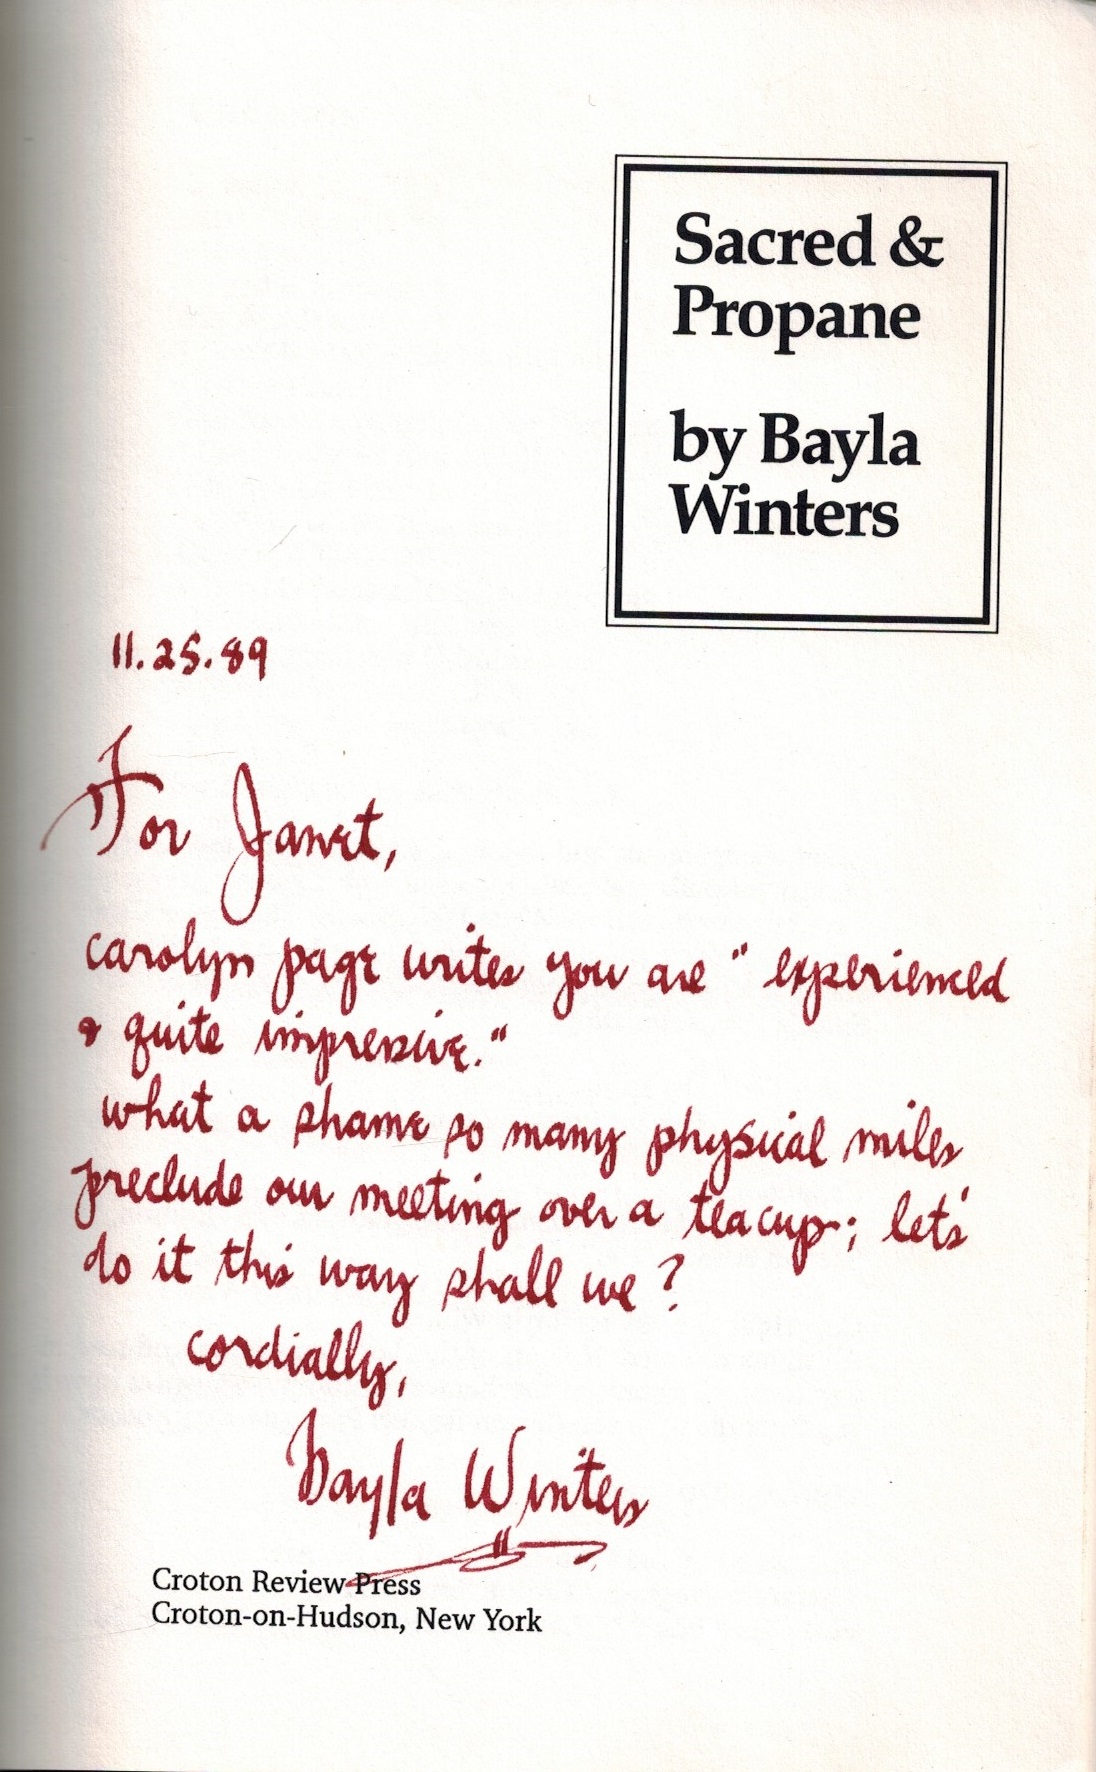 Sacred &
Propane
by Bayla
Winters
11.25.89
For Janet,
carolyn page writes you are "experienced
& quite impressive."
what a shame so many physical miles
preclude our meeting over a teacup; let's
do it this way shall we?
cordially,
Bayla Winters
Croton Review Press
Croton-on-Hudson, New York